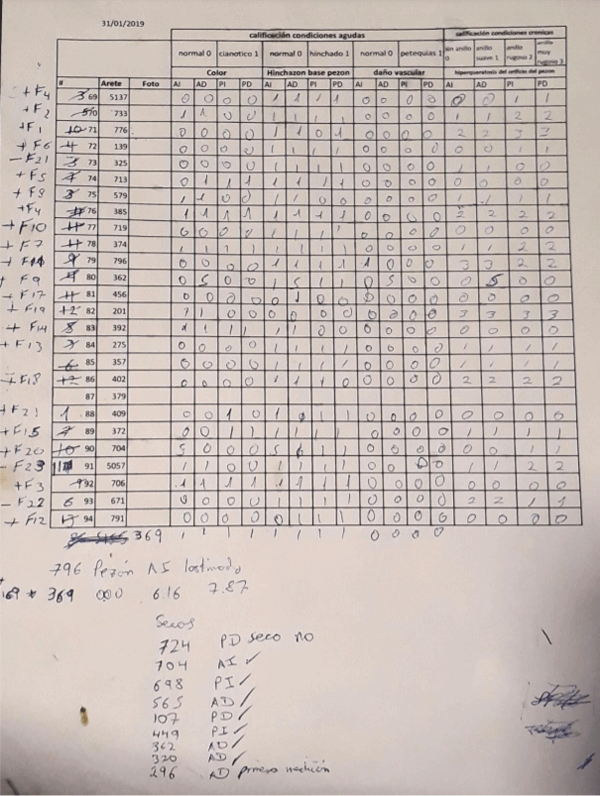 31/01/2019
calificación condiciones agudas calificación condiciones cronicas
normal 0 cianotico 1 normal 0 hinchado 1 normal 0 petequias 1 sin anillo 0 anillo suave 1 anillo rugoso 2 anillo muy rugoso 3
Color Hinchazon base pezon daño vascular hiperqueratosis del orificio del pezon
# Arete Foto AI AD PI PD AI AD PI PD AI AD PI PD AI AD PI PD
+F4 69 5137 0 0 0 0 1 1 1 1 0 0 0 0 0 0 1 1
+F2 70 733 1 1 0 0 1 1 1 1 0 0 0 0 1 1 2 2
+F1 71 776 0 0 0 0 1 1 0 1 0 0 0 0 2 2 3 3
+F6 72 139 0 0 0 0 1 1 1 1 0 0 0 0 0 0 1 1
-F21 73 325 0 0 0 0 1 1 1 1 0 0 0 0 1 1 0 0
+F5 74 713 0 1 1 1 1 1 1 1 0 0 0 0 0 0 0 0
+F8 75 579 1 1 0 0 1 1 0 0 0 0 0 0 1 1 1 1
+F4 76 385 1 1 1 1 1 1 1 1 0 0 0 0 2 2 2 2
+F10 77 719 0 0 0 0 1 1 1 1 0 0 0 0 0 0 0 0
+F7 78 374 1 1 1 1 1 1 1 1 0 0 0 0 1 1 2 2
79 796 0 0 0 0 1 1 1 1 1 0 0 0 3 3 2 2
F9 80 362 0 5 0 0 1 5 1 1 0 5 0 0 0 5 0 0
+F17 81 456 0 0 0 0 0 1 0 0 0 0 0 0 0 0 0 0
+F19 82 201 1 1 0 0 0 0 0 0 0 0 0 0 3 3 3 3
+F14 83 392 1 1 1 1 1 1 0 0 0 0 0 0 0 0 0 0
+F13 84 275 0 0 0 0 1 1 1 1 0 0 0 0 1 1 1 1
85 357 0 0 0 0 1 1 1 1 0 0 0 0 1 1 1 1
+F18 86 402 0 0 0 0 1 1 1 0 0 0 0 0 2 2 2 2
87 379
+F21 1 88 409 0 0 1 0 1 0 1 1 0 0 0 0 0 0 0 0
+F15 89 372 0 0 1 1 1 1 1 1 0 0 0 0 1 1 1 1
+F20 90 704 5 0 0 0 5 1 1 1 0 0 0 0 0 0 1 1
-F23 91 5057 1 1 0 0 1 1 1 1 0 0 0 0 1 1 2 2
+F3 92 706 1 1 1 1 1 1 1 1 0 0 0 0 0 0 0 0
-F22 93 671 0 0 0 0 1 1 1 1 0 0 0 0 2 2 1 1
+F12 94 791 0 0 0 0 0 1 1 1 0 0 0 0 0 0 0 0
369 1 1 1 1 1 1 1 1 0 0 0 0
796 Pezón AI lastimado
169 * 369 000 6.16 7.87
Secos
724 PD seco no
704 AI ✓
698 PI ✓
565 AD ✓
107 PD ✓
449 PI ✓
362 AD ✓
320 AD ✓
296 AD primera medición